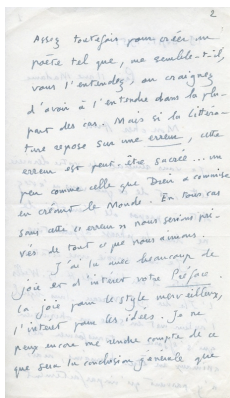 2
Assez toutefois pour créer un
poète tel que, me semble-t-il,
vous l'entendez, ou craignez
d'avoir à l'entendre dans la plu-
part des cas. Mais si la littéra-
ture repose sur une erreur, cette
erreur est peut-être sacrée... un
peu comme celle que Dieu a commise
en créant le Monde. En tous cas
sans cette erreur nous serions pri-
vés de tout ce que nous aimons.
J'ai lu avec beaucoup de
joie et d'intérêt votre Préface.
La joie pour le style merveilleux,
l'intérêt pour les idées. Je ne
peux encore me rendre compte de ce
que sera la conclusion générale que